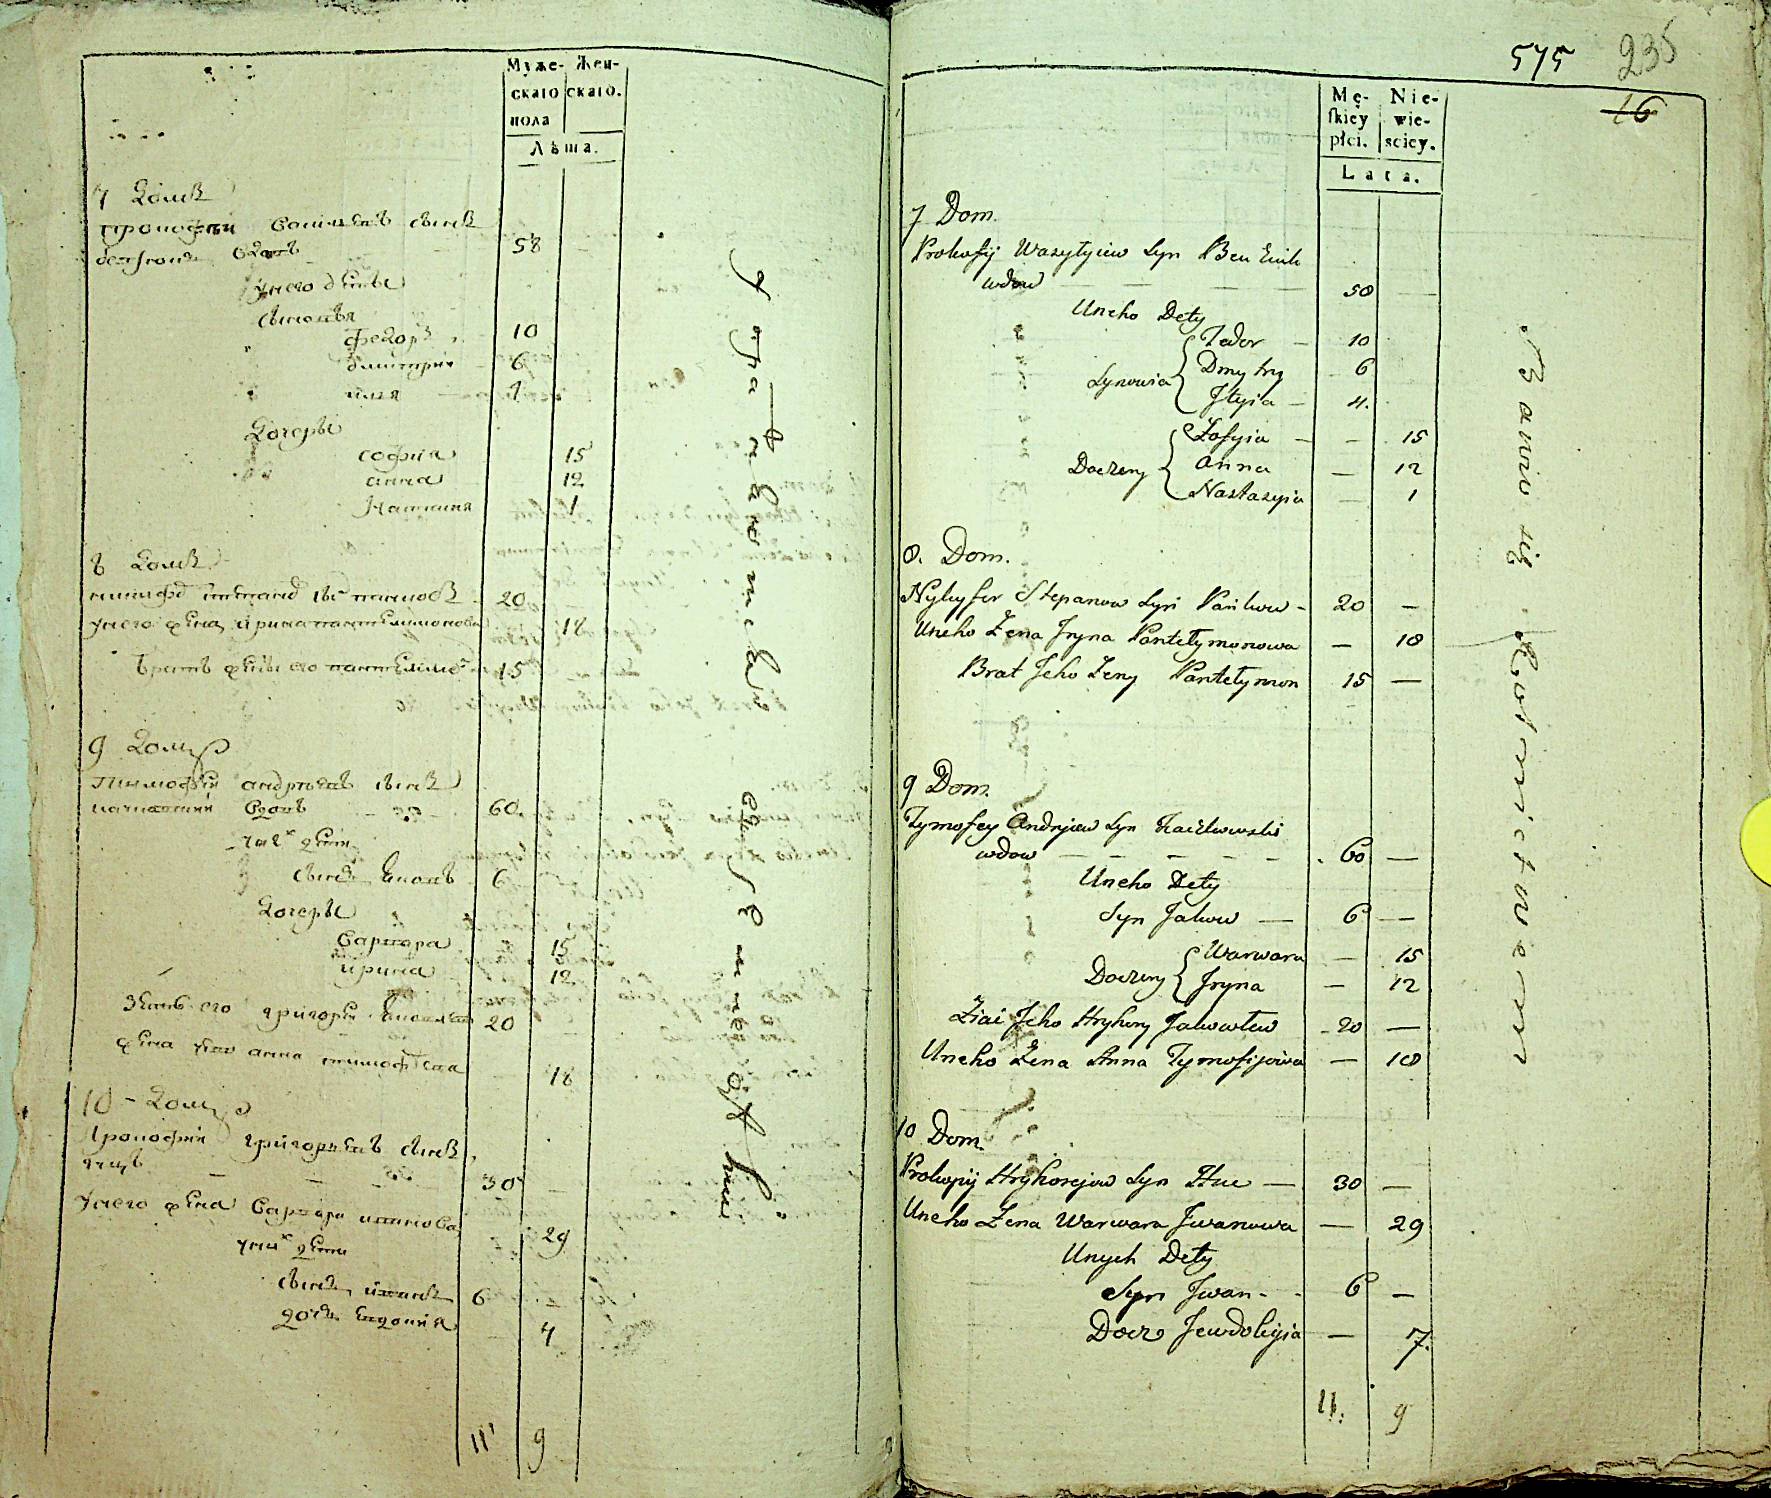 Муже- Жен-
скаго скаго.
пола
Лѣта.
7 Домъ
Прокофий Васильевъ сынъ
вдовъ 58
у него дѣти
сыновья
Федоръ 10
Дмитрий 6
Илья 4
Дочеры
София 15
Анна 12
1
8 Домъ
20
у него жена Ирина Пантелимонова 18
Братъ жены его Пантелимонъ 15
9 Домъ
Тимофей Андреевъ сынъ
вдовъ 60
у них дети
сынъ Яковъ 6
Дочеры
Варвара 15
Ирина 12
Зять его Григорий 20
жена Анна 18
10 Домъ
Прокофий Григорьевъ сынъ
Гуцъ 30
у него жена Варвара Иванова 29
у них дети
сынъ Иванъ 6
дочь Евдокия 7
11 9
Упражняются
575 235
16
Mę- Nie-
skiey wie-
płci. sciey.
Lata.
7 Dom.
Prokofij Wasylyiew Syn
wdow — — — — 58 —
Uneho Dety
Synowia Fedor — 10
Dmytry 6
Jlyia — 4.
Doczery Zofyia — — 15
Anna — 12
Nastazyia — 1
8. Dom.
Nykyfor Stepanow Syn Pańkow - 20 —
Uneho Żena Jryna Pantełymonowa — 18
Brat Jeho Żeny Pantełymon 15 —
9 Dom.
Tymofey Andrejew Syn
wdow — — — — — 60 —
Uneho Dety
Syn Jakow — 6 —
Doczery Warwara — 15
Jryna — 12
Ziat Jeho Hryhory Jakowlew 20 —
Uneho Żena Anna Tymofijowa — 18
10 Dom
Prokopij Hryhorejow Syn Huc — 30 —
Uneho Żena Warwara Jwanowa — 29
Unych Dety
Syn Jwan - - 6 —
Docz Jewdokyia — 7.
11. 9
Bawią się Rolnictwem